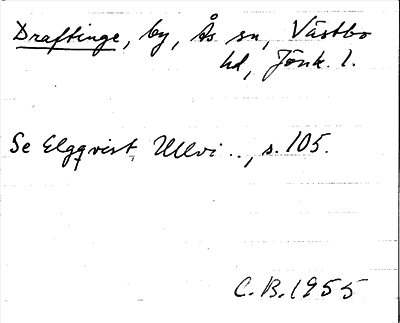 Draftinge, by, Ås sn, Västbo
hd, Jönk. l.
Se Elgqvist, Ullvi .., s. 105.
C. B. 1955